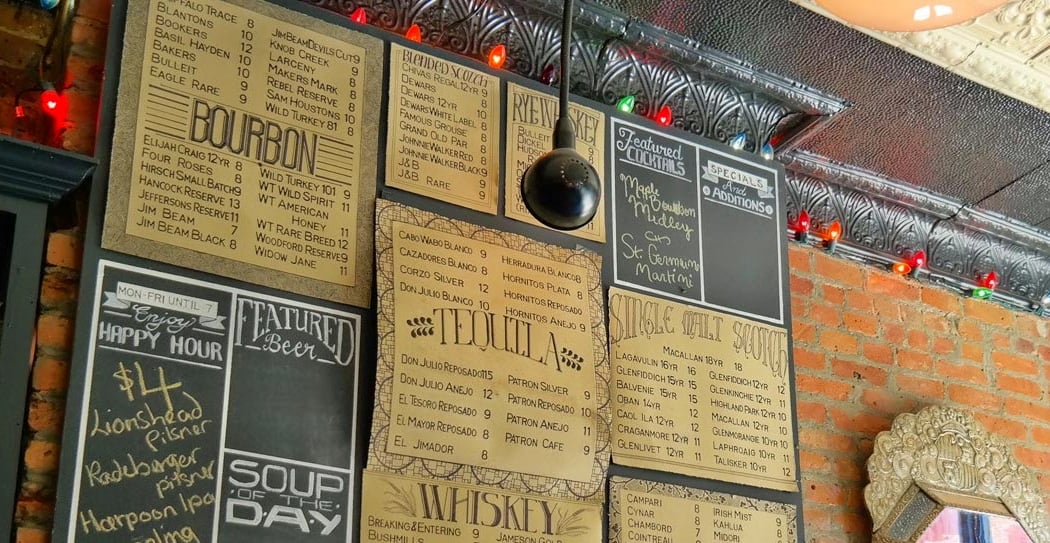 BUFFALO TRACE 8
BLANTONS 10
BOOKERS 12
BASIL HAYDEN 10
BAKERS 12
BULLEIT 10
EAGLE RARE 9
JIM BEAM DEVILS CUT 9
KNOB CREEK 9
LARCENY 9
MAKERS MARK 8
REBEL RESERVE 8
SAM HOUSTONS 10
WILD TURKEY 81 8
BOURBON
ELIJAH CRAIG 12YR 8
FOUR ROSES 8
HIRSCH SMALL BATCH 9
HANCOCK RESERVE 13
JEFFERSONS RESERVE 11
JIM BEAM 7
JIM BEAM BLACK 8
WILD TURKEY 101 9
WT WILD SPIRIT 11
WT AMERICAN
HONEY 11
WT RARE BREED 12
WOODFORD RESERVE 9
WIDOW JANE 11
BLENDED SCOTCH
CHIVAS REGAL 12YR 9
DEWARS 8
DEWARS 12YR 10
DEWARS WHITE LABEL 8
FAMOUS GROUSE 8
GRAND OLD PAR 8
JOHNNIE WALKER RED 8
JOHNNIE WALKER BLACK 9
J&B RARE 9
RYE WHISKEY
BULLEIT
DICKEL
Featured
COCKTAILS
Maple
Bourbon
Medley
St. Germain
Martini
SPECIALS
And
ADDITIONS
MON-FRI UNTIL 7
Enjoy
HAPPY HOUR
$4
Lionshead
Pilsner
Radeberger
pilsner
Harpoon Ipa
FEATURED
Beer
SOUP
OF THE
DAY
CABO WABO BLANCO 9
CAZADORES BLANCO 8
CORZO SILVER 12
DON JULIO BLANCO 10
HERRADURA BLANCO 8
HORNITOS PLATA 8
HORNITOS REPOSADO
HORNITOS ANEJO 9
TEQUILA
DON JULIO REPOSADO 11.5
DON JULIO ANEJO 12
EL TESORO REPOSADO 9
EL MAYOR REPOSADO 8
EL JIMADOR 8
PATRON SILVER 9
PATRON REPOSADO 10
PATRON ANEJO 11
PATRON CAFE 9
SINGLE MALT SCOTCH
MACALLAN 18YR 18
LAGAVULIN 16YR 16
GLENFIDDICH 15YR 15
BALVENIE 15YR 15
OBAN 14YR 12
CAOL ILA 12YR 12
CRAGANMORE 12YR 11
GLENLIVET 12YR 11
GLENFIDDICH 12YR 12
GLENKINCHIE 12YR 12
HIGHLAND PARK 12YR 10
MACALLAN 12YR 12
GLENMORANGE 10YR 10
LAPHROAIG 10YR 11
TALISKER 10YR 12
WHISKEY
BREAKING & ENTERING 9
BUSHMILLS
JAMESON GOLD
CAMPARI 8
CYNAR 8
CHAMBORD 7
COINTREAU
IRISH MIST 9
KAHLUA 8
MIDORI